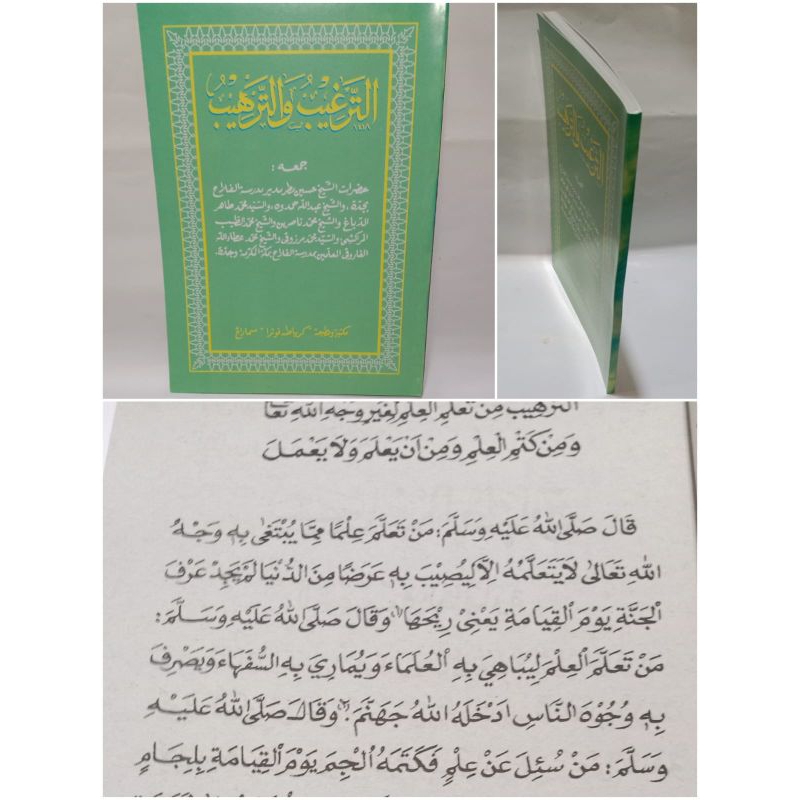 الترغيب والترهيب
جمعه :
حضرات الشيخ حسين مطر مدير مدرسة الفلاح
بجدة، والشيخ عبدالله حمدوه، والسيد محمد طاهر
الدباغ والشيخ محمد ناصر بن والشيخ محمد الطيب
المركشى والسيد محمد مرزوقى والشيخ محمد عطاء الله
الفاروقى المعلمين بمدرسة الفلاح بمكة المكرمة وجدة
مكتبة ومطبعة "كرياطه فوترا" سماراغ
الترهيب من تعلم العلم لغير وجه الله تعالى
وَمِنْ كَتْمِ الْعِلْمِ وَمِنْ اَنْ يَعْلَمَ وَلَا يَعْمَلَ
قَالَ صَلَّى اللهُ عَلَيْهِ وَسَلَّمَ: مَنْ تَعَلَّمَ عِلْمًا مِمَّا يُبْتَغٰى بِهِ وَجْهُ
اللهِ تَعَالٰى لَا يَتَعَلَّمُهُ اِلَّا لِيُصِيْبَ بِهِ عَرَضًا مِنَ الدُّنْيَا لَمْ يَجِدْ عَرْفَ
الْجَنَّةِ يَوْمَ الْقِيَامَةِ يَعْنِىْ رِيْحَهَا وَقَالَ صَلَّى اللهُ عَلَيْهِ وَسَلَّمَ:
مَنْ تَعَلَّمَ الْعِلْمَ لِيُبَاهِيَ بِهِ الْعُلَمَاءَ وَيُمَارِيَ بِهِ السُّفَهَاءَ وَيَصْرِفَ
بِهِ وُجُوْهَ النَّاسِ اَدْخَلَهُ اللهُ جَهَنَّمَ. وَقَالَ صَلَّى اللهُ عَلَيْهِ
وَسَلَّمَ: مَنْ سُئِلَ عَنْ عِلْمٍ فَكَتَمَهُ الْجِمَ يَوْمَ الْقِيَامَةِ بِلِجَامٍ